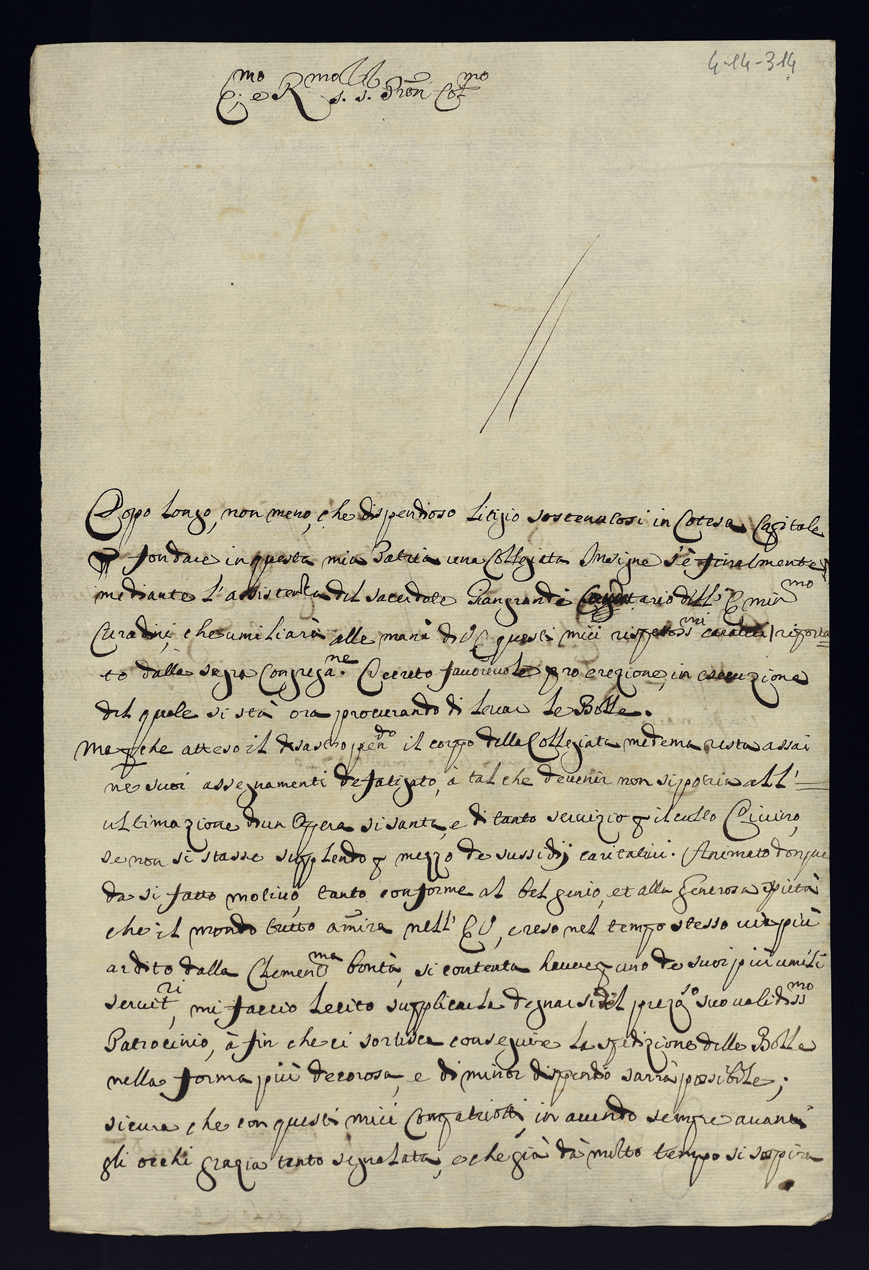 4-14-314
E.mo e R.mo s. s. Pron Col.mo
Doppo longo, non meno, che dispendioso litigio sostenutosi in Cotesa Capitale
fondare in questa mia Patria una Collegiata Insigne s'è finalmente
mediante l'assistenza del sacerdote Giangrande dell' Emin.mo
che umiliarà alle mani di VE questi miei riporta
to dalla segra Congrega.ne Decreto favorevole pro erezione, in esecuzione
del quale si stà ora procurando di levar le Bolle.
Ma che atteso il disastro il corpo della Collegiata medema resta assai
ne suoi assegnamenti defatigato, a tal che devenir non si potria all'
ultimazione d'un Opera si santa, e di tanto servizio il culto Divino,
se non si stasse supplendo mezzo de sussidij caritativi. Animato donque
da si fatto motivo, tanto conforme al bel genio, et alla generosa pietà
che il mondo tutto amira nell' EV, e reso nel tempo stesso vie più
ardito dalla Clement.ma bontà, si contenta havere uno de suoi più umili
servit.ri, mi faccio lecito supplicarla degnarsi del suo validiss.mo
Patrocinio, à fin che ci sortisca conseguire la spedizione delle Bolle
nella forma più decorosa, e di minor dispendio sarrà possibile;
sicura che con questi miei Compatriotti, in avendo sempre avanti
gli occhi grazia tanto signalata, e che già dà molto tempo si sospira